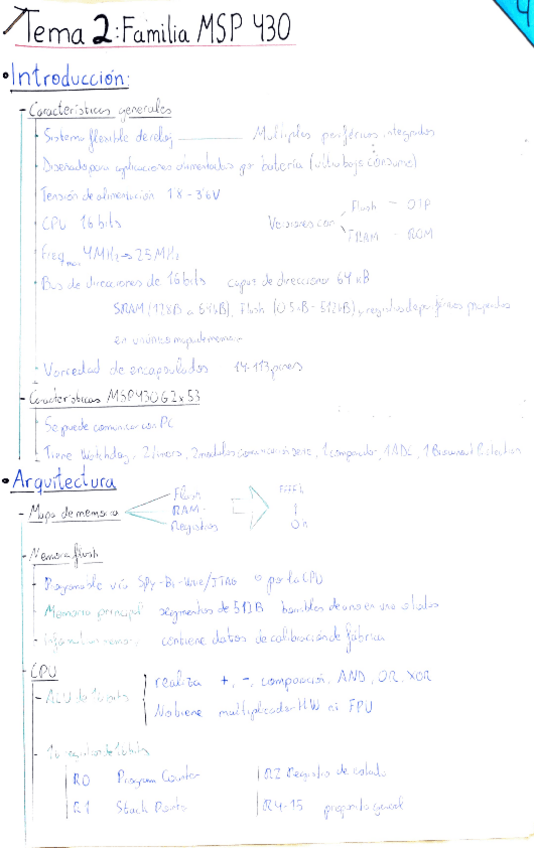 4
Tema 2: Familia MSP 430
• Introducción:
- Características generales
Sistema flexible de reloj ——— Múltiples periféricos integrados
Diseñado para aplicaciones alimentadas por batería (ultra bajo consumo)
Tensión de alimentación 1'8 - 3'6V
CPU 16 bits
Versiones con Flash - OTP
FRAM - ROM
Freq max 4MHz → 25MHz
Bus de direcciones de 16 bits capaz de direccionar 64 kB
SRAM (128B a 64kB), Flash (0'5kB - 512kB) y registros de periféricos mapeados
en un único mapa de memoria
Variedad de encapsulados 14-113 pines
- Características MSP430G2x53
Se puede comunicar con PC
Tiene Watchdog, 2 timers, 2 modulos comunicación serie, 1 comparador, 1 ADC, 1 Brownout
• Arquitectura
- Mapa de memoria
Flash
RAM
Registros
FFFFh
↓
0h
- Memoria flash
Programable vía SPY-Bi-Wire/JTAG o por la CPU
Memoria principal segmentos de 512B borrables de uno en uno o todos
Information memory contiene datos de calibración de fábrica
- CPU
- ALU de 16 bits
realiza +, -, comparación, AND, OR, XOR
No tiene multiplicador HW ni FPU
- 16 registros de 16 bits
R0 Program Counter
R2 Registro de estado
R1 Stack Pointer
R4-15 proposito general